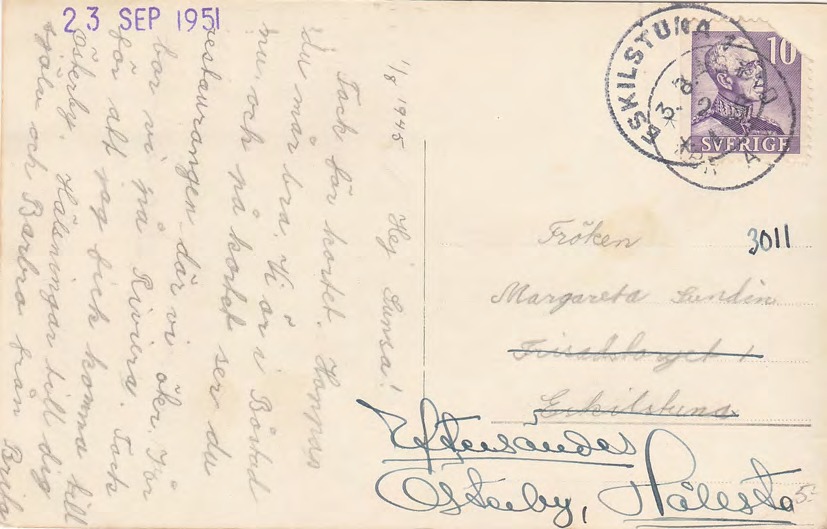 23 SEP 1951
1/8 1945 / Hej Sunsa!
Tack för kortet. Hoppas
du mår bra. Vi är i Båstad
nu och på kortet ser du
restaurangen där vi åker. För
bor vi på Riviera. Tack
för att jag fick komma till
Österby. Hälsningar till dig
själv och Barbro från Brita
ESKILSTUNA 1
10
SVERIGE
3011
Fröken
Margareta Sundin
Eskilstuna
Eftersändes
Österby, Nälesta
5:-